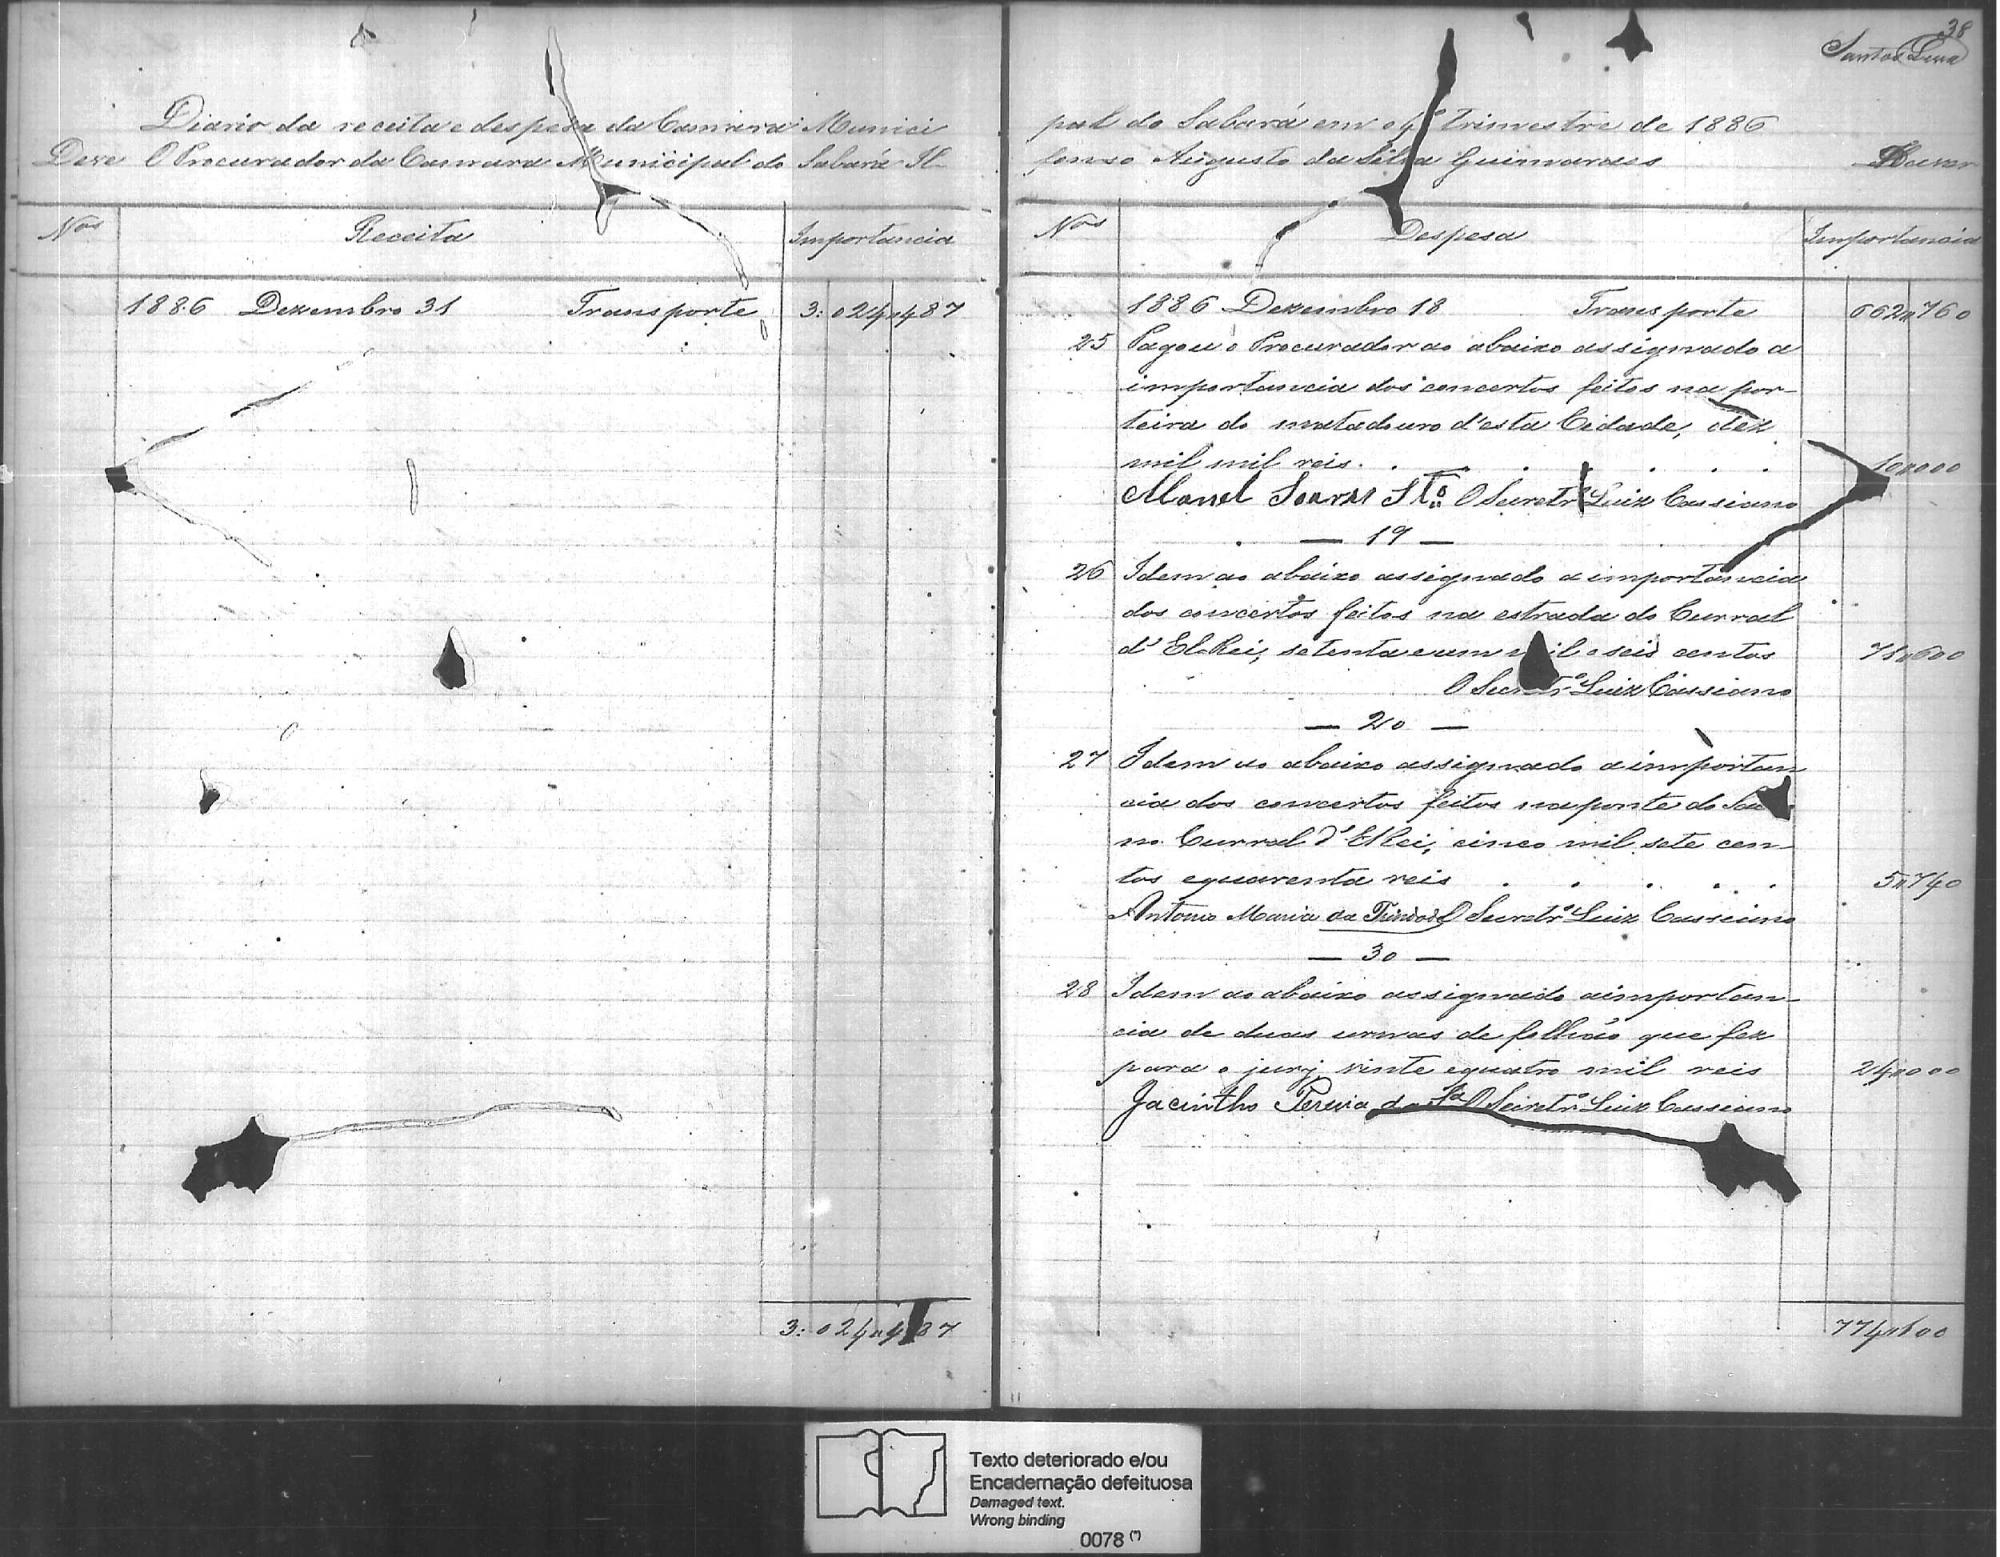 38
Santos Lima
Diario da receita e despesa da Camara Munici
Deve O Procurador da Camara Municipal do Sabará Il-
Nos Receita Importancia
1886 Dezembro 31 Transporte 3:024,,487
3:024,,487
pal do Sabará em o 4º trimestre de 1886
fonso Augusto da Silva Guimaraes Haver
Nos Despesa Importancia
1886 Dezembro 18 Transporte 662,,760
25 Pagou o Procurador ao abaixo assignado a
importancia dos concertos feitos na por-
teira do matadouro d'esta Cidade, dez
mil mil reis. . . . . . . 10,,000
Manel Soares O Secretrº Luiz Cassiano
— 19 —
26 Idem ao abaixo assignado a importancia
dos concertos feitos na estrada do Curral
d'ElRei, setenta e um mil e seis centos 71,,600
O Secretrº Luiz Cassiano
— 20 —
27 Idem ao abaixo assignado a importan
cia dos concertos feitos na ponte do
no Curral d'ElRei, cinco mil sete cen-
tos e quarenta reis . . . . . . 5,,740
Antonio Maria da Trindade O Secretrº Luiz Cassiano
— 30 —
28 Idem ao abaixo assignado a importan-
cia de duas urnas de folhão que fez
para o jury, vinte e quatro mil reis 24,,000
Jacintho Pereira da Sª O Secretrº Luiz Cassiano
774,,100
Texto deteriorado e/ou
Encadernação defeituosa
Damaged text.
Wrong binding
0078 (*)